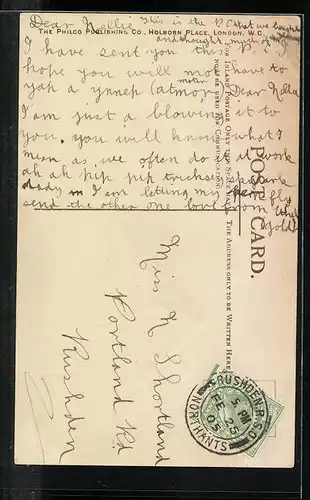 Dear Nellie This is the P.C that we bought
THE PHILCO PUBLISHING CO., HOLBORN PLACE, LONDON, W.C.
I have sent you this P.C. I
hope you will not have to
yap a ynnep Dear Nellie
I am just a blowing it to
you. you will know what I
mean as we often do at work
ah ah pip pip trickser spark
dady I am leting my pen fly
send the other one love from
FOR INLAND POSTAGE ONLY THIS SPACE MAY
NOW BE USED FOR COMMUNICATION.
POST CARD.
THE ADDRESS ONLY TO BE WRITTEN HERE.
Miss N Shortland
Portland Rd
Rushden
RUSHDEN R.S.O.
5 PM
FE 25
05
NORTHANTS